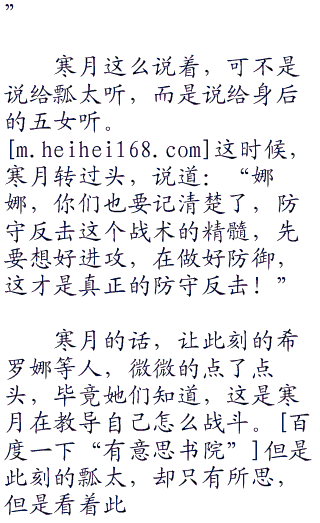 ”
寒月这么说着，可不是
说给瓢太听，而是说给身后
的五女听。
[m.heihei168.com]这时候，
寒月转过头，说道：“娜
娜，你们也要记清楚了，防
守反击这个战术的精髓，先
要想好进攻，在做好防御，
这才是真正的防守反击！”
寒月的话，让此刻的希
罗娜等人，微微的点了点
头，毕竟她们知道，这是寒
月在教导自己怎么战斗。[百
度一下“有意思书院”]但是
此刻的瓢太，却只有所思，
但是看着此